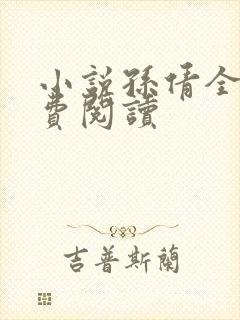 小説孫倩全
費閱讀
吉普斯蘭